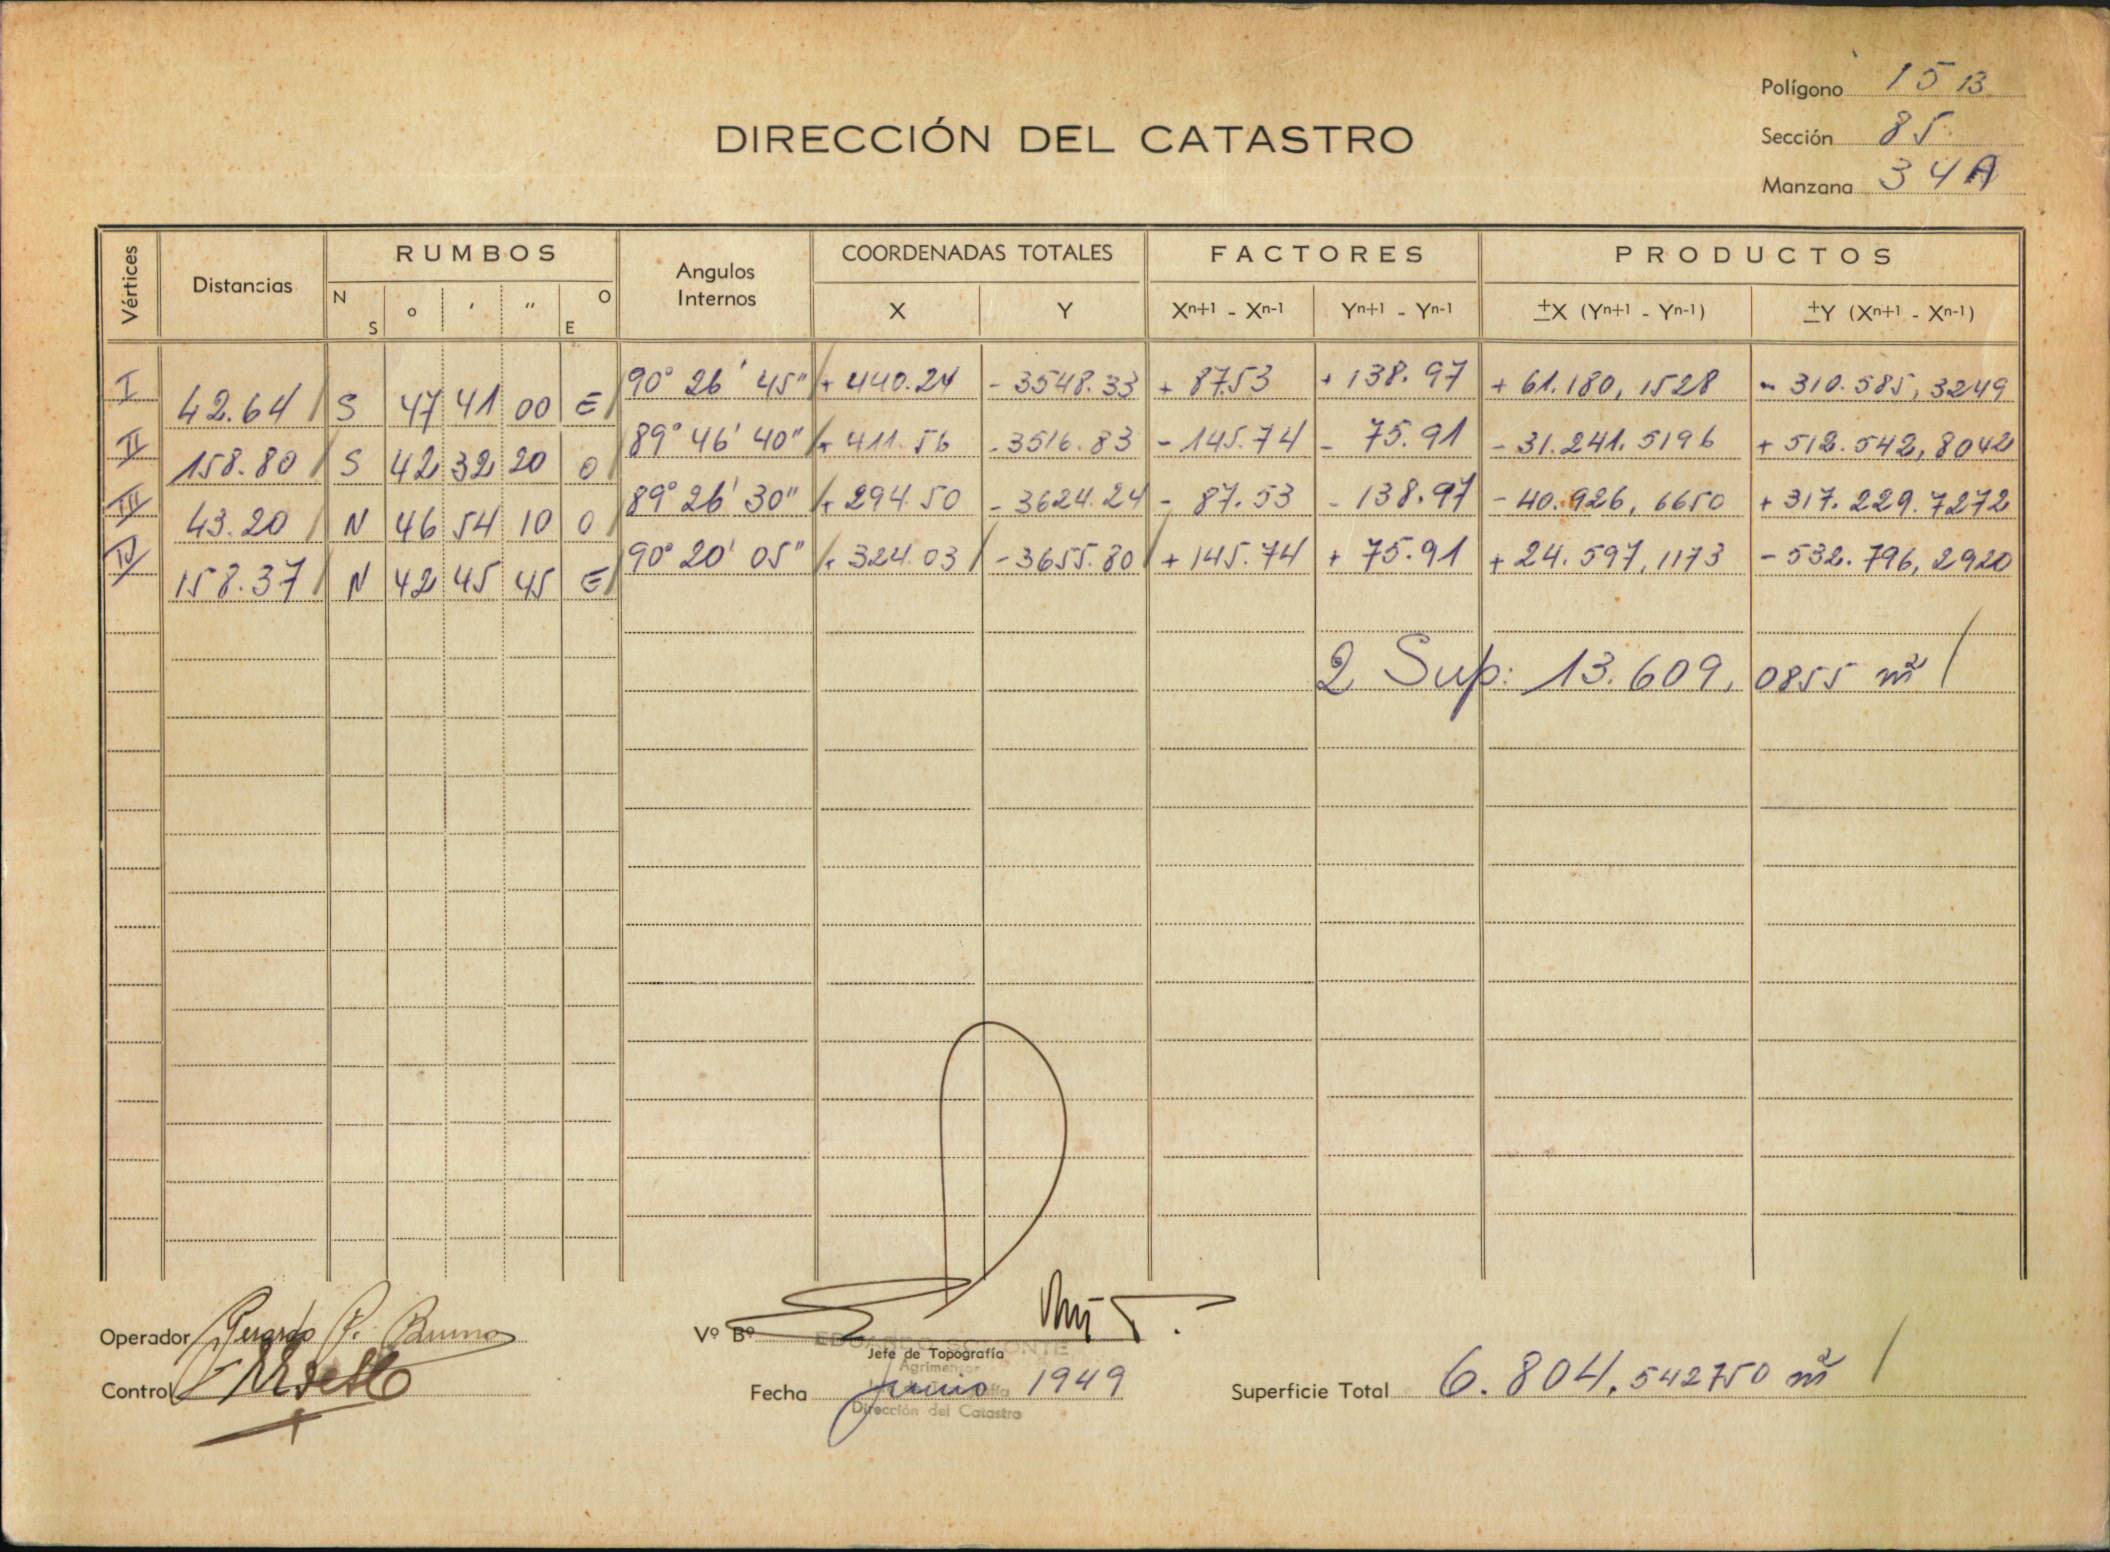 Polígono 15 B
DIRECCIÓN DEL CATASTRO
Sección 85
Manzana 34A
Vértices Distancias RUMBOS Angulos Internos COORDENADAS TOTALES FACTORES PRODUCTOS
N S ° ' '' O E X Y Xⁿ⁺¹ - Xⁿ⁻¹ Yⁿ⁺¹ - Yⁿ⁻¹ ±X (Yⁿ⁺¹ - Yⁿ⁻¹) ±Y (Xⁿ⁺¹ - Xⁿ⁻¹)
I 90° 26' 45" + 440.24 - 3548.33 + 87.53 + 138.97 + 61.180,1528 - 310.585,3249
42.64 S 47 41 00 E
II 89° 46' 40" + 411.56 - 3516.83 - 145.74 - 75.91 - 31.241.5196 + 512.542,8042
158.80 S 42 32 20 O
III 89° 26' 30" + 294.50 - 3624.24 - 87.53 - 138.97 - 40.926,6650 + 317.229.7272
43.20 N 46 54 10 O
IV 90° 20' 05" + 324.03 - 3655.80 + 145.74 + 75.91 + 24.597,1173 - 532.796,2920
158.37 N 42 45 45 E
2 Sup: 13.609,0855 m²
Operador Gerardo P. Bruno
Vº Bº
Jefe de Topografía
Agrimensor
Control
Fecha junio 1949
Dirección del Catastro
Superficie Total 6.804.542750 m²